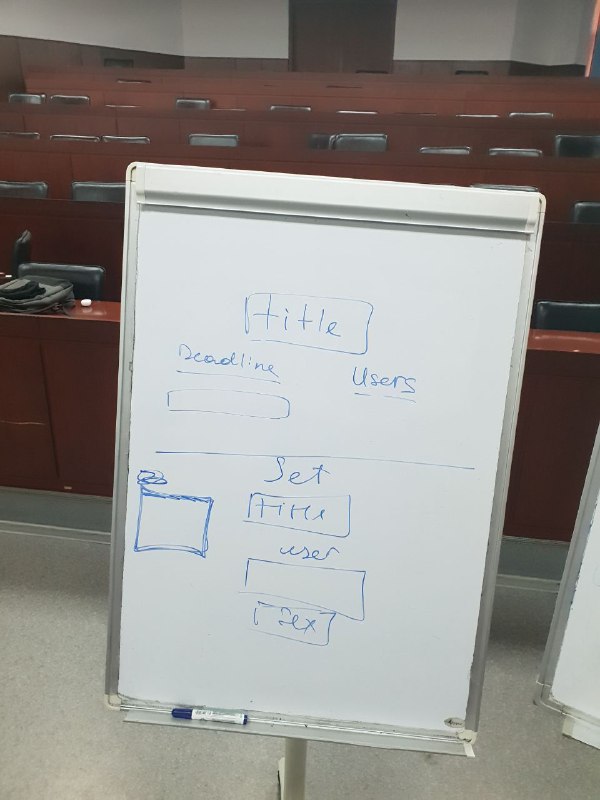 title
Deadline
Users
Set
title
user